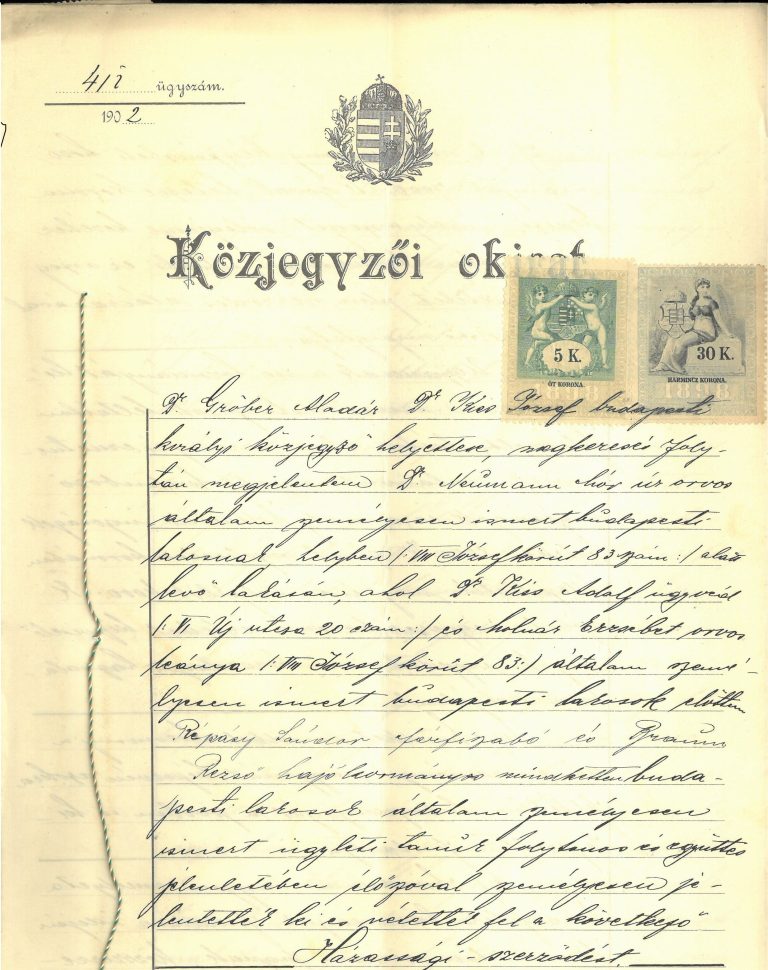 411 ügyszám.
1902
Közjegyzői okirat
5 K.
ÖT KORONA.
30 K.
HARMINCZ KORONA.
Dr. Gróber Aladár Dr. Kiss József budapesti
királyi közjegyző helyettese, megkeresés foly-
tán megjelentem Dr. Neumann Mór úr orvos
általam személyesen ismert budapesti
lakosnak, helyben /: VIII József körút 83 szám :/ alatt
levő lakásán, ahol Dr. Kiss Adolf ügyvéd
/: VI Új utcza 20 szám :/ és Molnár Erzsébet orvos
leánya /: VIII József körút 83 :/ általam szemé-
lyesen ismert budapesti lakosok előttem
Répásy Sándor férfiszabó és Braun
Rezső hajókormányos mindketten buda-
pesti lakosok általam személyesen
ismert ügyleti tanúk folytonos és együttes
jelenletében élőszóval személyesen je-
lentették ki és vétették fel a következő
Házassági-szerződést